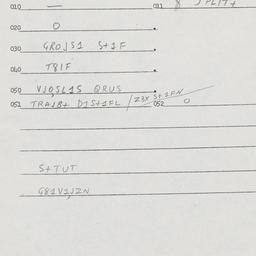 010 — 011 8 SPLIT+
020 0
030 GROJS1 S+1F
040 T8IF
050 VJOSL1S QRUS
051 TRAJB+ DJS+1FL / Z3X S+1FN 052 0
S+TUT
G81V1JZN